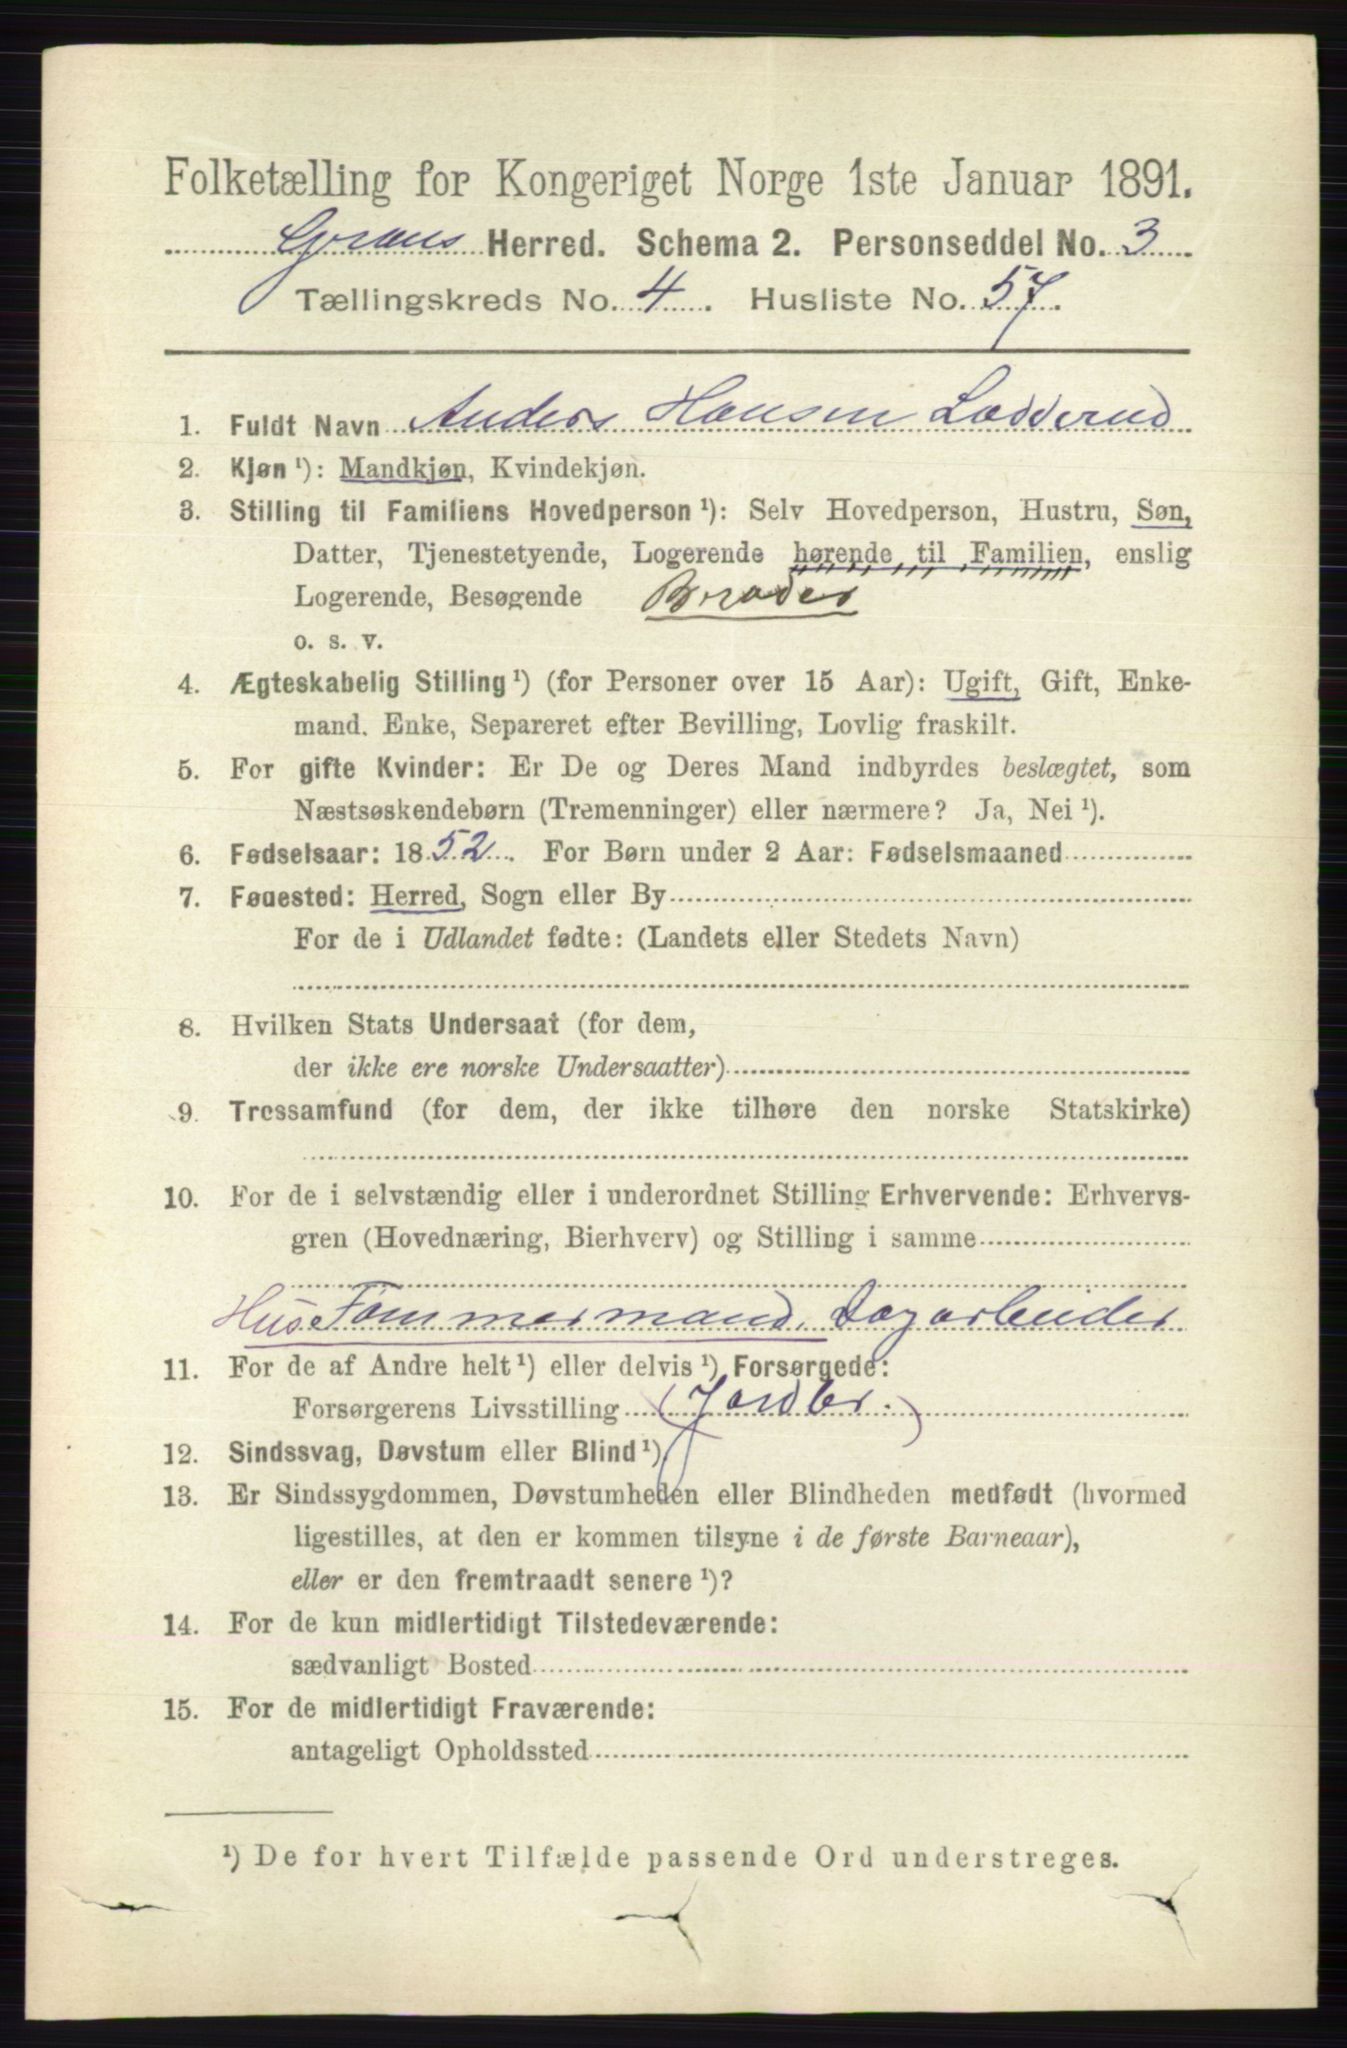 Folketælling for Kongeriget Norge 1ste Januar 1891.
Grans Herred. Schema 2. Personseddel No. 3
Tællingskreds No. 4. Husliste No. 57.
1. Fuldt Navn Anders Hansen Lædderud
2. Kjøn ¹): Mandkjøn, Kvindekjøn.
3. Stilling til Familiens Hovedperson ¹): Selv Hovedperson, Hustru, Søn,
Datter, Tjenestetyende, Logerende hørende til Familien, enslig
Logerende, Besøgende Broder
o. s. v.
4. Ægteskabelig Stilling ¹) (for Personer over 15 Aar): Ugift, Gift, Enke-
mand. Enke, Separeret efter Bevilling, Lovlig fraskilt.
5. For gifte Kvinder: Er De og Deres Mand indbyrdes beslægtet, som
Næstsøskendebørn (Tremenninger) eller nærmere? Ja, Nei ¹).
6. Fødselsaar: 1852. For Børn under 2 Aar: Fødselsmaaned
7. Føuested: Herred, Sogn eller By
For de i Udlandet fødte: (Landets eller Stedets Navn)
8. Hvilken Stats Undersaat (for dem,
der ikke ere norske Undersaatter)
9. Trossamfund (for dem, der ikke tilhøre den norske Statskirke)
10. For de i selvstændig eller i underordnet Stilling Erhvervende: Erhvervs-
gren (Hovednæring, Bierhverv) og Stilling i samme
Hus Tømmermand, Dagarbeider
11. For de af Andre helt ¹) eller delvis ¹) Forsørgede:
Forsørgerens Livsstilling (Jordbr.)
12. Sindssvag, Døvstum eller Blind ¹).
13. Er Sindssygdommen, Døvstumheden eller Blindheden medfødt (hvormed
ligestilles, at den er kommen tilsyne i de første Barneaar),
eller er den fremtraadt senere ¹)?
14. For de kun midlertidigt Tilstedeværende:
sædvanligt Bosted
15. For de midlertidigt Fraværende:
antageligt Opholdssted
¹) De for hvert Tilfælde passende Ord understreges.